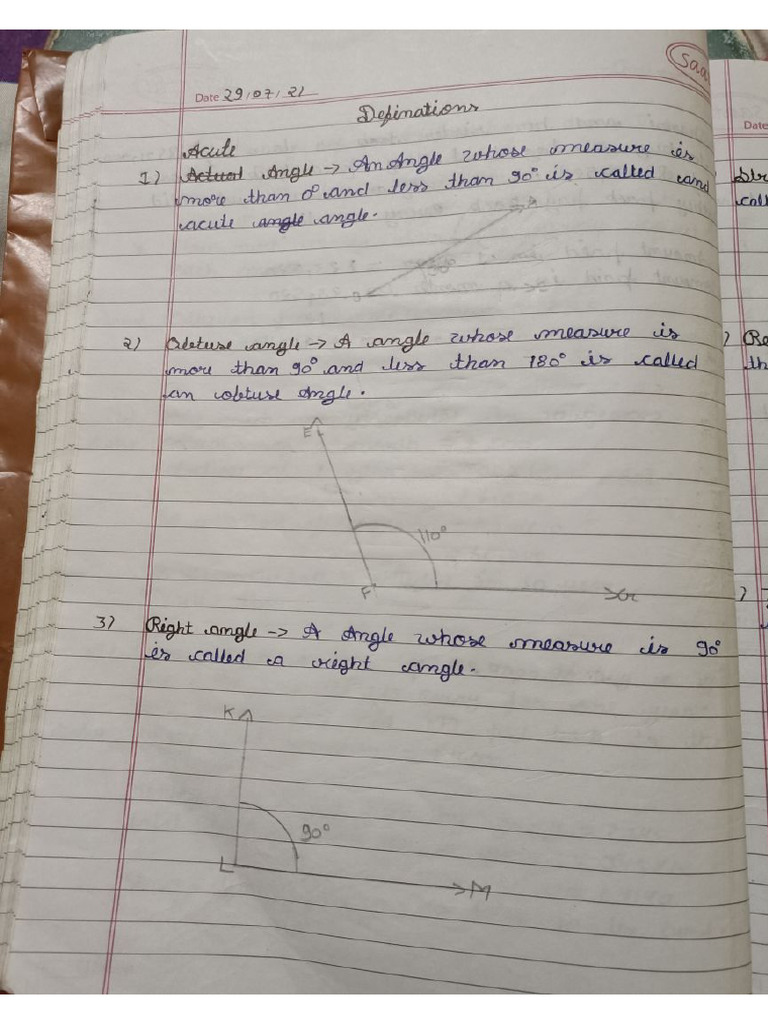 Saa
Date 29/07/21
Definations
Acute
1) Actual Angle → An Angle whose measure is
more than 0° and less than 90° is called and
acute angle angle.
2) Obtuse angle → A angle whose measure is
more than 90° and less than 180° is called
an obtuse Angle.
E
110°
F
3) Right angle → A Angle whose measure is 90°
is called a right angle.
K
90°
L
M
Date